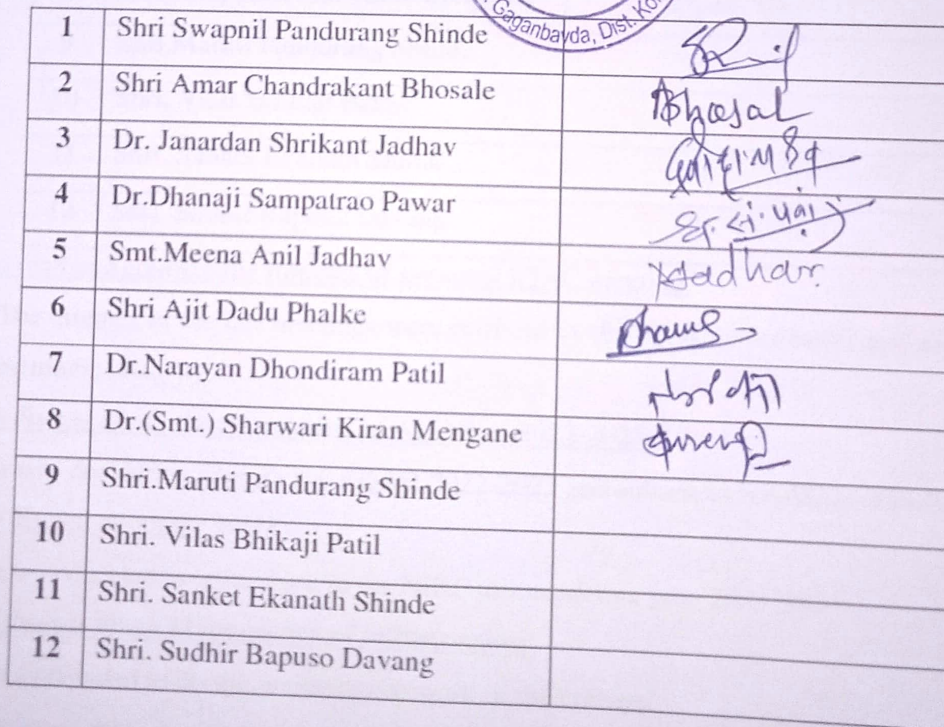 Gaganbavda, Dist. Ko
1 Shri Swapnil Pandurang Shinde
2 Shri Amar Chandrakant Bhosale Abhosal
3 Dr. Janardan Shrikant Jadhav
4 Dr.Dhanaji Sampatrao Pawar
5 Smt.Meena Anil Jadhav
6 Shri Ajit Dadu Phalke
7 Dr.Narayan Dhondiram Patil
8 Dr.(Smt.) Sharwari Kiran Mengane
9 Shri.Maruti Pandurang Shinde
10 Shri. Vilas Bhikaji Patil
11 Shri. Sanket Ekanath Shinde
12 Shri. Sudhir Bapuso Davang